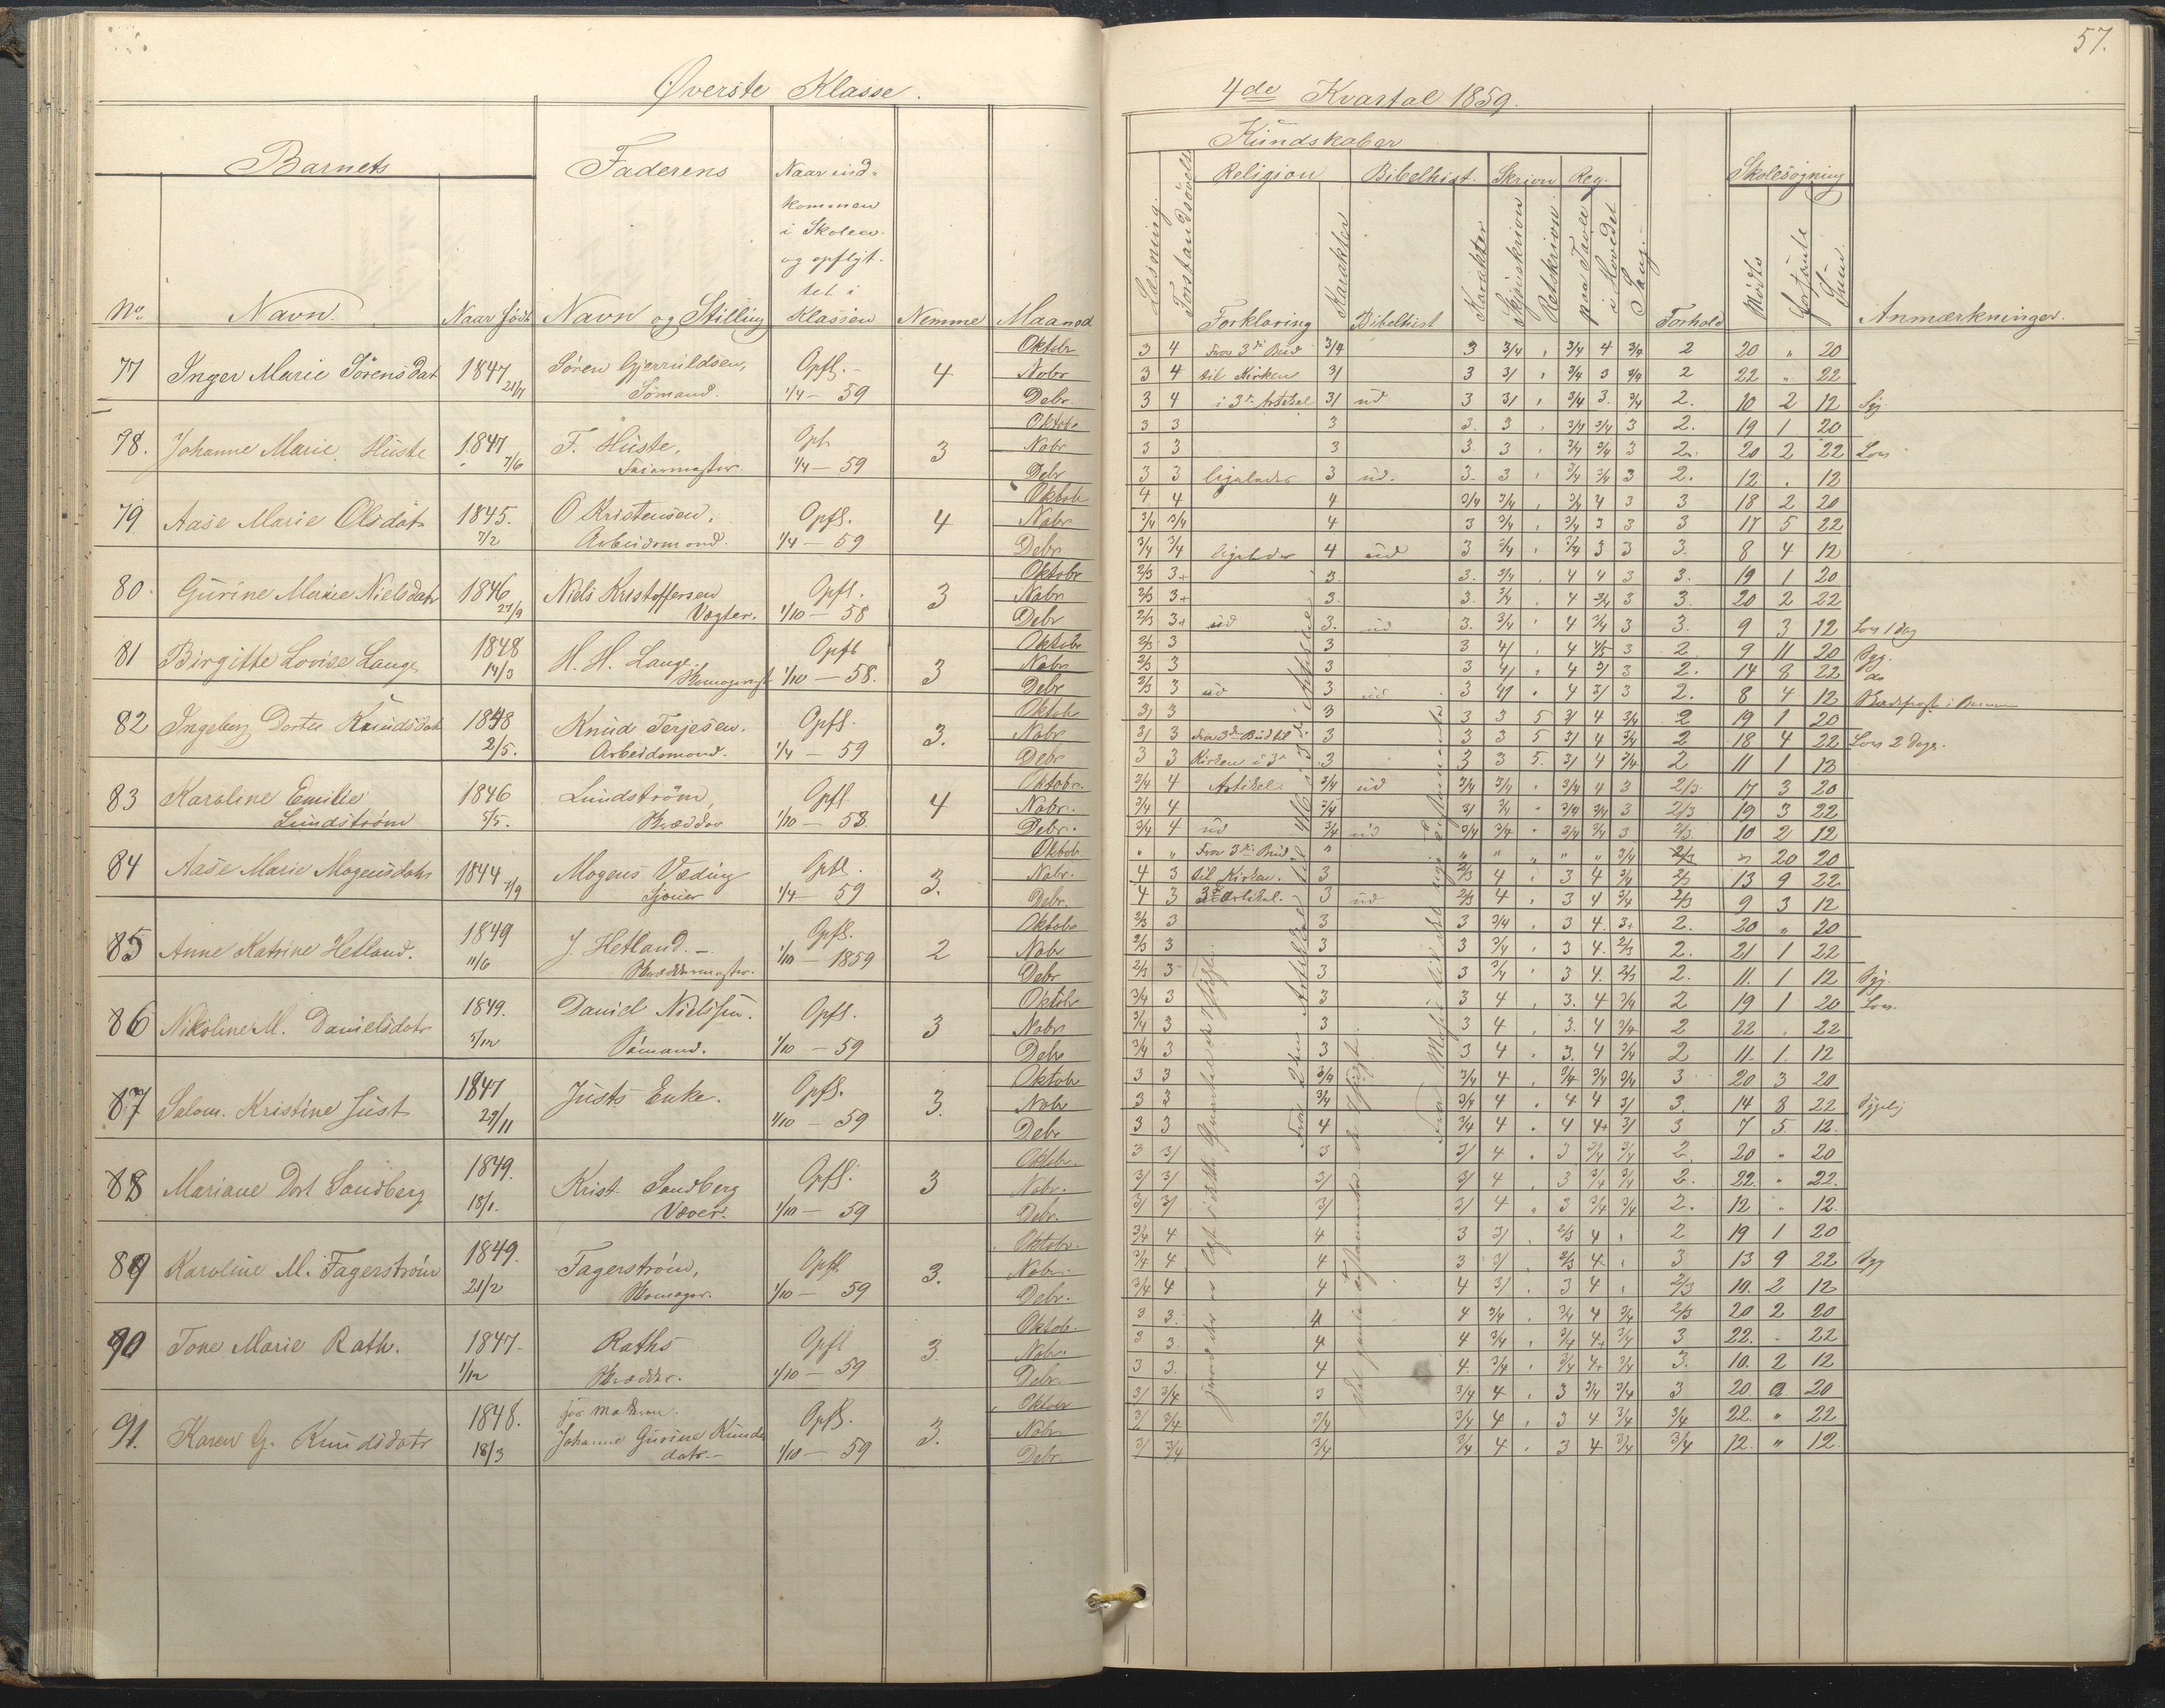 57.
Øverste Klasse.
4de Kvartal 1859.
Kundskaber
Barnets
Faderens
Naar ind-
kommen
i Skolen
og opflyt-
tet i
Klassen
Religion
Bibelhist.
Skrivn
Reg.
Skolesøgning
No.
Navn.
Naar født
Navn og Stilling
Nemme
Maaned
Læsning.
Forstandsøvelse
Forklaring
Karakter
Bibelhist
Karakter
Skjønskrivn
Retskrivn.
paa Tavle
i Hovedet
Sang.
Forhold
Mødte
forsømte
Anmærkninger.
77 Inger Marie Sörensdat 1847 21/7 Søren Gjeruldsen, Sømand. Opfl. 1/4 - 59 4
Oktobr 3 4 Fra 3die Bud 3/4 3 3/4 " 3/4 4 3/4 2 20 " 20
Nobr 3 4 til Kirken 3/ 3 3/ " 3/4 3 3/4 2 22 " 22
Debr 3 4 i 3die Artikel 3/ ud 3 3/ " 3/4 3. 3/4 2. 10 2 12 Syg
78. Johanne Marie Huste 1847 7/6 F. Huste, 1/4 - 59 3
Oktobr 3 3 3 3. 3 " 3/4 3/4 3 2. 19 1 20
Nobr 3 3 3 3. 3 " 3/4 3/4 3 2. 20 2 22 Lov
Debr 3 3 ligeledes 3 ud. 3. 3 " 3/4 3/4 3 2. 12 . 12
79 Aase Marie Olsdat 1845. 7/2 O Kristensen, Arbeidsmand. Opfl. 1/4 - 59 4
Oktobr 4 4 4 3/4 3/4 " 3/4 4 3 3 18 2 20
Nobr 3/4 3/4 4 3 3/4 " 3/4 3 3 3 17 5 22
Debr 3/4 3/4 ligeledes 4 ud 3 3/4 " 3/4 3 3 3. 8 4 12
80 Gurine Marie Nielsdatr 1846 27/9 Niels Kristoffersen Vægter. Opfl. 1/10 - 58 3
Oktobr 2/3 3+ 3. 3. 3/4 " 4 4 3 3. 19 1 20
Nobr 2/3 3+ 3. 3. 3/4 " 4 3/4 3 3. 20 2 22
Debr 2/3 3+ ud 3. ud 3. 3/4 " 4 3/4 3 3. 9 3 12 Lov 1 dag
81 Birgitte Lovise Lange 1848 14/3 H. H. Lange. Opfl 1/10 - 58. 3
Oktobr 2/3 3 3 3 4/ " 4 4/5 3 2 9 11 20 Syg.
Nobr 2/3 3 3 3 4/ " 4 3/ 3 2. 14 8 22 do
Debr 2/3 3 ud 3 ud 3 4/ " 4 3/ 3 2. 8 4 12
82 Ingeborg Dortee Knudsdat 1848 2/5. Knud Terjesen. Arbeidsmand. Opfl. 1/4 - 59 3.
Oktobr 3/ 3 3 3 3 5 3/ 4 3/4 2 19 1 20
Nobr 3/ 3 fra 3die Bud til 3 3 3 5 3/ 4 3/4 2 18 4 22 Lov 2 dage.
Debr 3 3 Kirken i 3die 3 3 3 5. 3/ 4 3/4 2 11 1 12
83 Karoline Emilie Lundstrøm 1846 5/5. Lundstrøm, Skrædder Opfl 1/10 - 58. 4
Oktobr. 3/4 4 Artikel. 3/4 ud 3/4 3/4 " 3/4 4 3 2/3 17 3 20
Nobr. 3/4 4 3/4 3/ 3/4 " 3/4 3/4 3 2/3 19 3 22
Debr. 3/4 4 ud 3/4 ud 3/4 3/4 " 3/4 3/4 3 2/3 10 2 12
84 Aase Marie Mogensdatr 1844 Mogens Væding Opfl. 1/4 - 59 3.
Oktob. " " Fra 3die Bud " " " " " " 3/4 2/3 " 20 20
Nobr. 4 3 til Kirken. 3 2/3 4 " 3 4 3/4 2/3 13 9 22
Debr. 4 3 3die Artikel. 3 ud 2/3 4 " 3 4 3/4 2/3 9 3 12
85 Anne Katrine Hetland. 1849 11/6 J. Hetland. Skræddermester. Opfl. 1/10 - 1859 2
Oktobr 2/3 3 3 3 3/4 " 3 4. 3+ 2. 20 " 20
Nobr 2/3 3 3 3 3/4 " 3 4. 2/3 2. 21 1 22
Debr 2/3 3 3 3 3/4 " 3 4. 2/3 2. 11. 1 12 Syg.
86 Nikoline M. Danielsdatr 1849. 5/12 David Nielssen. Sømand. Opfl. 1/10 - 59 3
Oktobr 3/4 3 3 3 4 " 3. 4 3/4 2 19 1 20 Lov.
Nobr 3/4 3 3 3 4 " 3. 4 3/4 2 22 . 22
Debr 3/4 3 3 3 4 " 3. 4 3/4 2 11. 1. 12
87 Salom. Kristine Just 1847 29/11 Justs Enke. Opfl. 1/10 - 59 3.
Oktobr 3 3 3/4 3/4 4 " 3/4 3/4 3/4 3 20 3 20
Nobr 3 3 3/4 3/4 4 " 4 4 3/ 3. 14 8 22 Sygelig
Debr 3 3 4 3/4 4 " 4 4+ 3/ 3 7 5 12.
88 Mariane Dort Sandberg 1849. 18/1. Krist. Sandberg Væver. Opfl. 1/10 - 59 3
Oktobr. 3 3/ 3 3/ 4 " 3 3/4 3/4 2. 20 " 20
Nobr. 3/ 3/ 3/ 3/ 4 " 3 3/4 3/4 2. 22. " 22.
Debr. 3/ 3/ 3/ 3/ 4 " 3 3/4 3/4 2. 12 " 12.
89 Karoline M. Fagerstrøm 1849. 21/2 Fagerstrøm, Skomager. Opfl. 1/10 - 59 3.
Oktobr. 3/4 4 4 3 3/ " 2/3 4 " 2 19 1 20
Nobr. 3/4 4 4 3 3/ " 2/3 4. " 3 13 9 22 Syg
Debr. 3/4 4 4 4 3/ " 3 4 " 2/3 10. 2 12
90 Tone Marie Rath. 1847. 1/12 Raths Skrædder. Opfl 1/10 - 59 3.
Oktob. 3 3. 4 4 3/4 " 3/4 4 3/4 2/3 20 2 20
Nobr. 3 3. 4 4 3/4 " 3/4 4+ 3/4 3 22. " 22
Debr. 3 3. 4 4. 3/4 " 3/4 4+ 3/4 3. 10. 2 12
91. Karen G. Knudsdatr 1848. 18/3 Johanne Gurine Knuds datr. Opfl. 1/10 - 59 3.
Oktobr 3/ 3/4 3 3/4 4 " 3 3/4 3/4 3 20. 20
Nobr 3/ 3/4 3/4 3/4 4 " 3 4 3/4 3/4 22. " 22
Debr. 3/ 3/4 3/4 3/4 4 " 3 4 3/4 3/4 12. " 12.